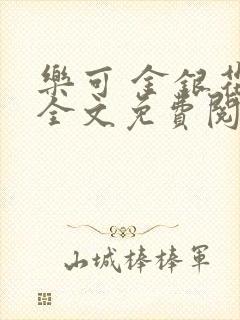 樂可 金銀花
全文免費閱
山城棒棒軍